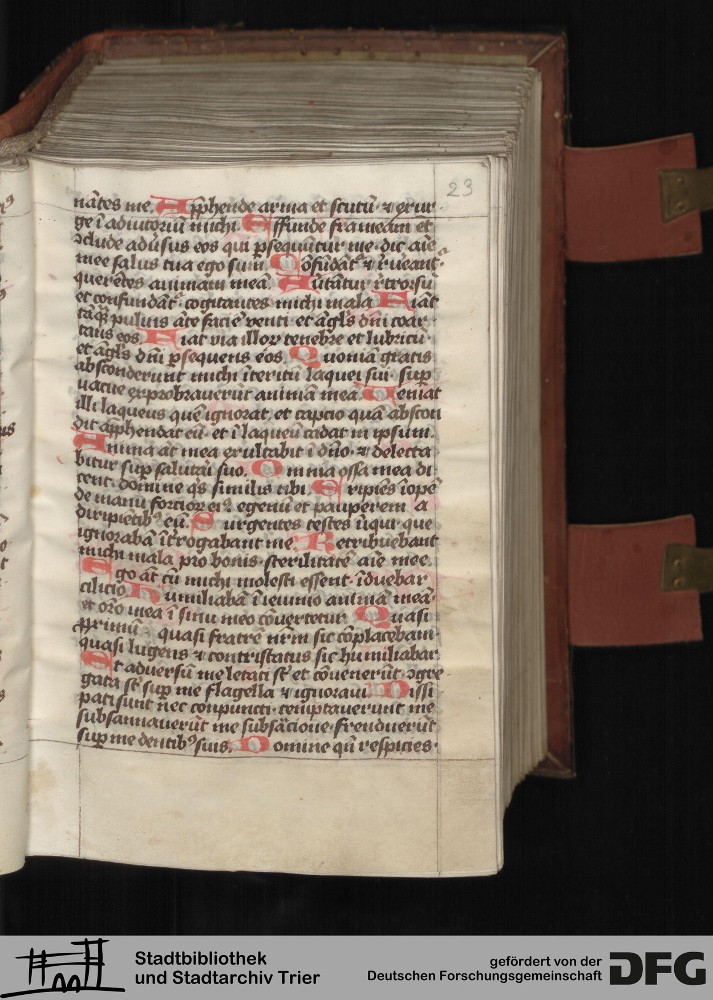 23
nãtes me. Apphende arma et scutũ ⁊ exur
ge ĩ adiutoriũ michi. Effunde frameam et
ↄclude adũsus eos qui psequũtur me dic aĩe
mee salus tua ego sum. Cõfũdãt᷑ ⁊ r̃ueant᷑
querẽtes animam meã. Auertãtur r̃trorsũ
et confundãt᷑ cogitantes michi mala. Fiãt
tãq̃ puluis ãte faciẽ venti et ãgls dñi coar
tans eos. Fiat via illoꝝ tenebre et lubricũ
et ãgls dñi psequens eos. Quoniã gratis
absconderunt michi ĩteritũ laquei sui sup
vacue exprobrauerũt animã mea. Veniat
illi laqueus quẽ ignorat et captio quã abscon
dit apphendat eũ et ĩ laqueũ cadat in ipsum.
Anima ãt mea exultabit ĩ dño ⁊ delecta
bitur sup salutari suo. Omnia ossa mea di
cent domine q̃s similis tibi. Eripiẽs ĩopẽ
de manu fortioꝝ eiꝰ egenũ et pauperem a
diripiẽtibꝰ eũ. Surgentes testes iniqui que
ignorabã ĩt̃rogabant me. Retribuebant
michi mala pro bonis sterilitatẽ aĩe mee.
Ego ãt cũ michi molesti essent ĩduebar
cilicio. Humiliabã ĩ ieiunio animã meã
et orõ mea ĩ sinu meo cõuertetur. Quasi
pximũ quasi fratrẽ nr̃m sic cõplacebam
quasi lugens ⁊ contristatus sic humiliabar
Et aduersũ me letati sũt et cõuenerũt ↄgre
gata sũt sup me flagella ⁊ ignoraui. Dissi
pati sunt nec conpuncti temptauerunt me
subsannauerũt me subsãcione frenduerũt
sup me dentibꝰ suis. Domine qñ respicies
Stadtbibliothek
und Stadtarchiv Trier
gefördert von der
Deutschen Forschungsgemeinschaft
DFG